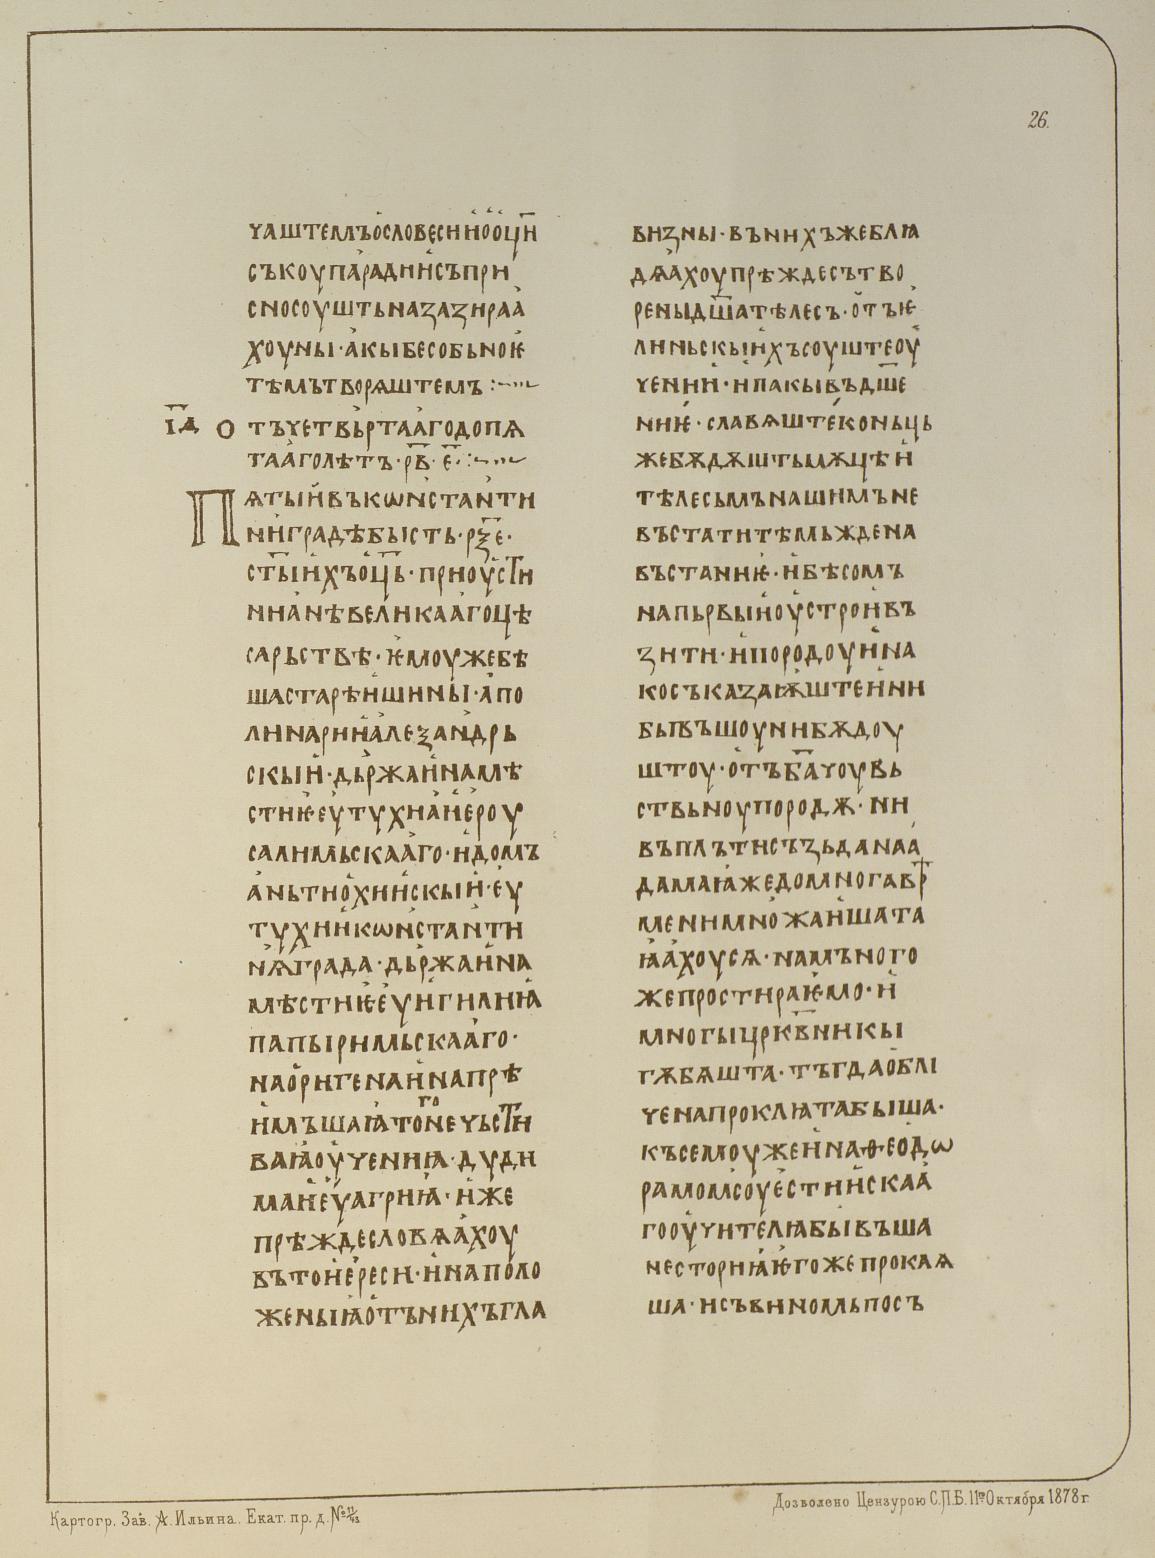 26.
чаштемъ ѡ словесии о оц҃и
съкоупарадиісъпри
сносоуштьназазираа
хоуны·акыбесобьноѥ
тѣмътворѧштемъ:~
і҃д отъчетвьртаагодопѧ
тааголѣтъ·рв҃·е҃·:~
Пѧтыивъкѡнстанти
ниградѣбысть·рѯ҃е·
ст҃ыихъоц҃ь·приоусти
нианѣвеликаагоцѣ
сарьствѣ·ѥмоужебѣ
шастарѣишины·апо
линарииалеѯандрь
скыи·дьржаинамѣ
стиѥеутухиаиероу
салимьскааго·идомъ
аньтиохиискыи·еу
тухиикѡнстанти
нѧграда·дьржаина
мѣстиѥеуигилиꙗ
папыримьскааго·
наоригенаинапрѣ
имъшаꙗтогонечьсти
ваꙗоученіиꙗ·дуди
маиеуагриꙗ·иже
прѣждесловѧахоу
вътоиереси·инаполо
женыꙗотънихъгла
визны·вънихъжеблꙗ
дѧахоупрѣждесътво
реныдш҃ателесъ·отъѥ
линьскыихъсоуштеоу
чении·ипакывъдш҃е
ниѥ·славѧштеконьць
жебѫдѫштьмѫцѣи
тѣлесьмънашимъне
въстатитѣмьждена
въстаниѥ·ибѣсомъ
напьрвыиоустроивъ
зити·ипородоуина
косъказаѭштеини
бывъшоунибѫдоу
штоу·отъб҃ачоувь
ствьноупородѫ·ни
въплътисъзьданаа
дамаꙗжедомногавр
менимножаишата
ꙗахоусѧ·намъного
жепростираѥмо·и
многыцркв҃никы
гѫбѧшта·тъгдаобли
ченапроклꙗтабыша·
къземоужеинаѳеодѡ
рамомсоуестиискаа
гооучителꙗбывъша
несториꙗѥгожепрокаѧ
ша·исъвиномьпосъ
Картогр. Зав. А. Ильина. Екат. пр. д. № 11/43
Дозволено Цензурою С.П.Б. 11го Октября 1878 г.